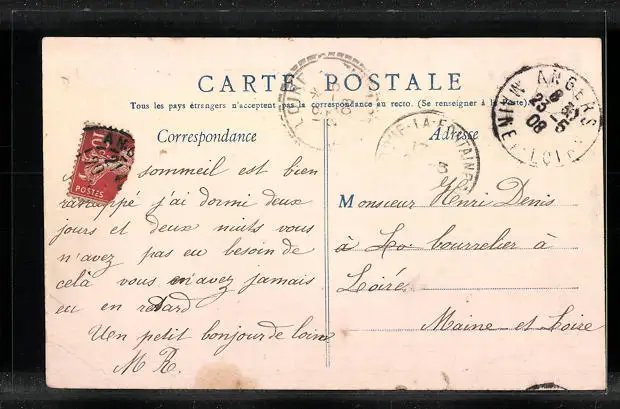 CARTE POSTALE
Tous les pays étrangers n'acceptent pas la correspondance au recto. (Se renseigner à la poste).
Correspondance
Adresse
sommeil est bien
j'ai dormi deux
jours et deux nuits vous
n'avez pas eu besoin de
celà vous n'avez jamais
eu en retard
Un petit bonjour de loin
M R.
Monsieur Henri Denis
à bourrelier à
Loiré
Maine et Loire
10
POSTES
ANGERS
8
23-5
08
MAINE-ET-LOIRE
LOIRE
LA-FONTAINE